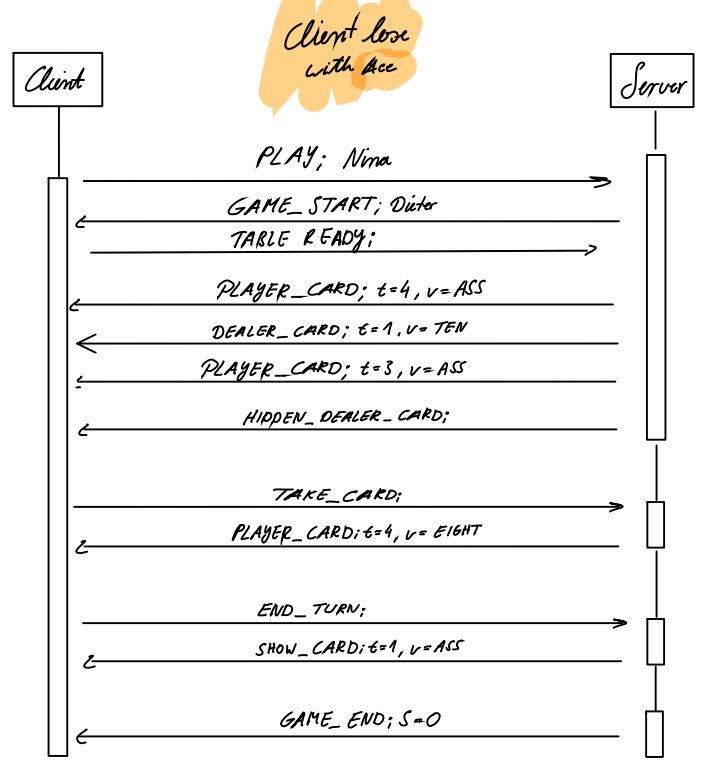 Client lose
with Ace
Client
Server
PLAY; Nina
GAME_START; Dieter
TABLE READY;
PLAYER_CARD; t=4, v=ASS
DEALER_CARD; t=1, v=TEN
PLAYER_CARD; t=3, v=ASS
HIDDEN_DEALER_CARD;
TAKE_CARD;
PLAYER_CARD; t=4, v=EIGHT
END_TURN;
SHOW_CARD; t=1, v=ASS
GAME_END; S=0